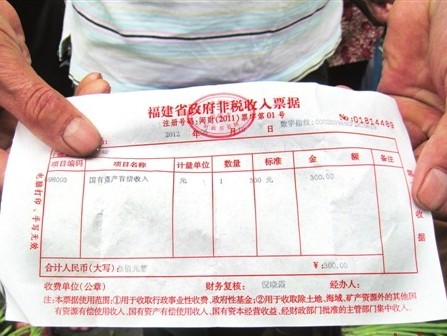 福建省政府非税收入票据
注册号码:闽财(2011)票字第01号
2012 年 月 日 数字指纹: No:01814489
项目编码 项目名称 计量单位 数量 标准 金 额 备注
国有资产有偿收入 元 1 300 300.00
合计人民币(大写) 叁佰元整 ¥:300.00
收费单位(公章) 财务复核: 倪晓霞 经办人:
注:本票据使用范围:①用于收取行政事业性收费、政府性基金;②用于收取除土地、海域、矿产资源外的其他国
有资源有偿使用收入、国有资产有偿使用收入、国有资本经营收益、经财政部门批准的主管部门集中收入。
电脑打印,手写无效
第 收据